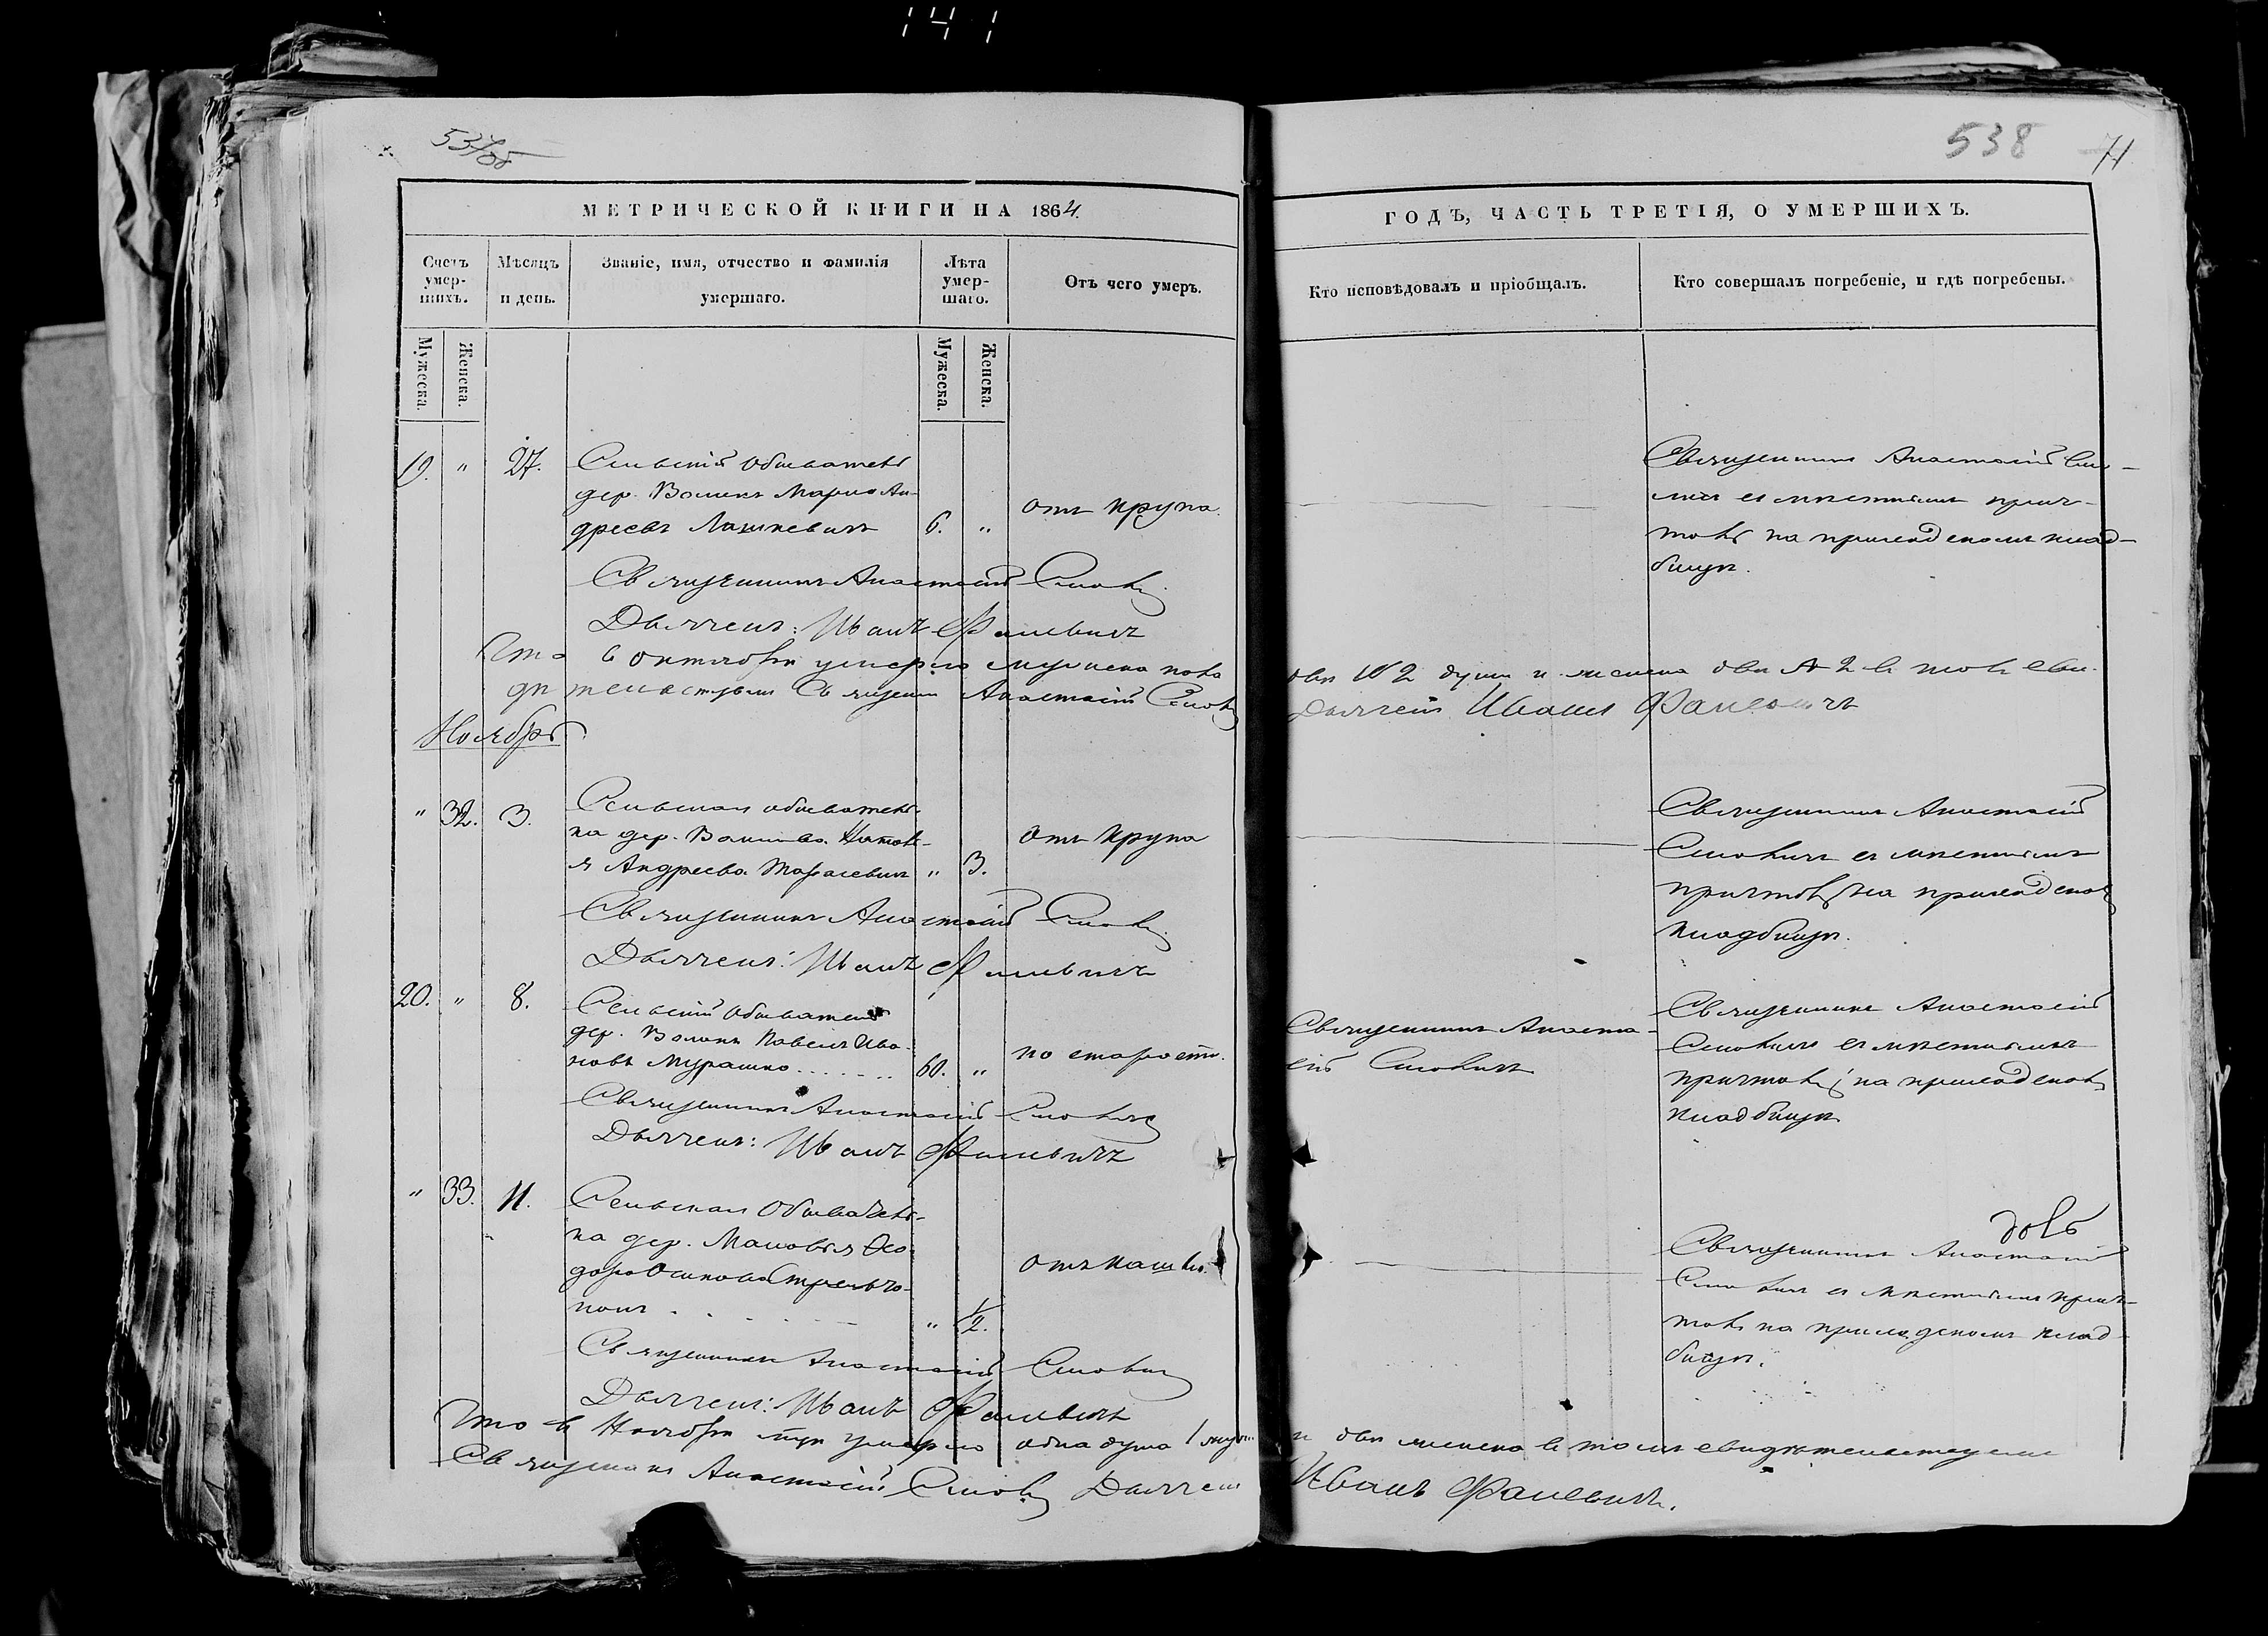 141
537об
538 71
МЕТРИЧЕСКОЙ КНИГИ НА 1864
ГОДЪ, ЧАСТЬ ТРЕТІЯ, О УМЕРШИХЪ.
Счетъ умер-
шихъ.
Мѣсяцъ
и день.
Званіе, имя, отчество и фамилія
умершаго.
Лѣта
умер-
шаго.
Отъ чего умеръ.
Кто исповѣдовалъ и пріобщалъ.
Кто совершалъ погребеніе, и гдѣ погребены.
Мужеска.
Женска.
Мужеска.
Женска.
19. " 27. Сельскій обыватель
дер. Марко Ан-
дреевъ Лашкевичъ 6. "
отъ крупа.
Священникъ Анастасій
съ мѣстнымъ прич-
томъ на приходскомъ клад-
бищѣ.
Священникъ Анастасій
Дьячекъ: Иванъ Фалевичъ
Что въ октябрѣ умерло мужеска пола
двѣ 2 души и женска двѣ 2 въ томъ сви-
дѣтельствуемъ Священникъ Анастасій
Дьячекъ Иванъ Фалевичъ
Ноябрь
" 32. 3. Сельская обыватель-
ка дер. Наталь-
я Андреева Тарасевичъ " 3.
отъ крупа
Священникъ Анастасій
съ мѣстнымъ
причтомъ на приходскомъ
кладбищѣ.
Священникъ Анастасій
Дьячекъ: Иванъ Фалевичъ
20. " 8. Сельскій обыватель
дер. Павелъ Ива-
новъ Мурашко 60. "
по старости.
Священникъ Анаста-
сій
Священникъ Анастасій
съ мѣстнымъ
причтомъ на приходскомъ
кладбищѣ
Священникъ Анастасій
Дьячекъ: Иванъ Фалевичъ
" 33. 11. Сельская обыватель-
ка дер. Ѳео-
дора
" 1/2.
отъ кашля.
Священникъ Анастасій
съ мѣстнымъ прич-
томъ на приходскомъ клад-
бищѣ.
Священникъ Анастасій
Дьячекъ: Иванъ Фалевичъ
Что въ Ноябрѣ умерло одна душа 1
и двѣ женска въ томъ свидѣтельствуемъ
Священникъ Анастасій Дьячекъ
Иванъ Фалевичъ.